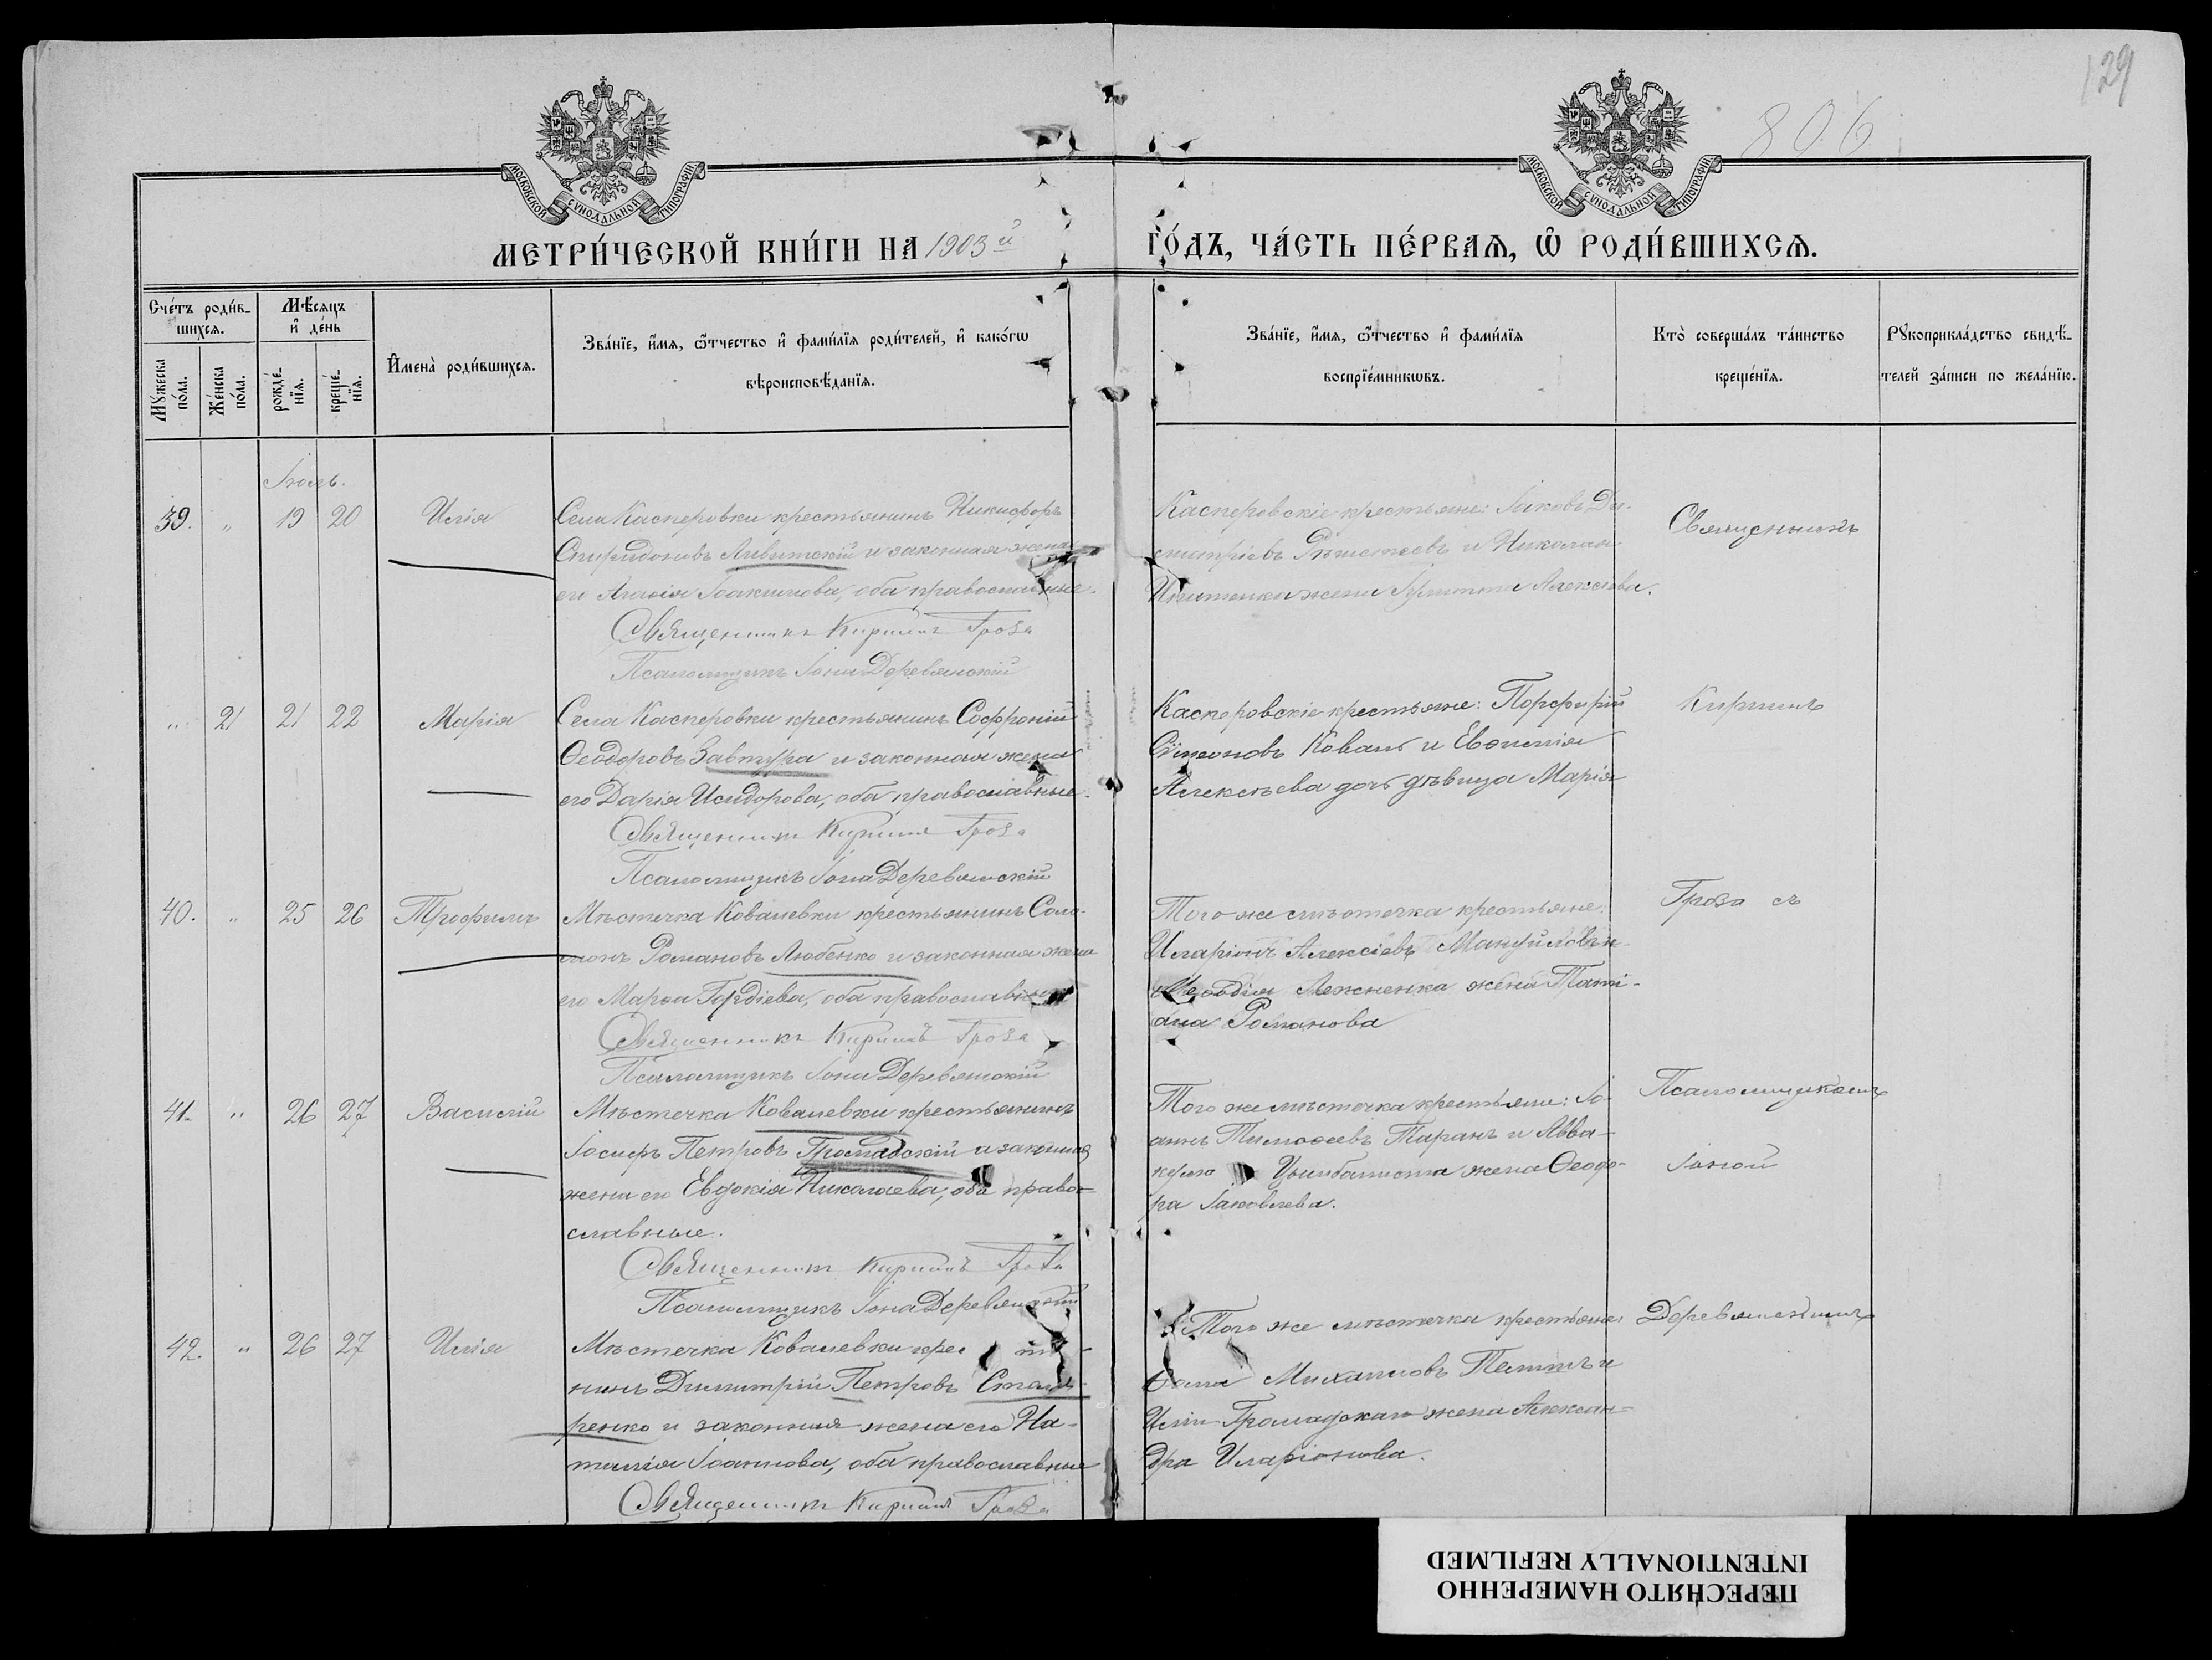 129
806
МОСКОВСКОЙ СѴНОДАЛЬНОЙ ТИПОГРАФІИ
МОСКОВСКОЙ СѴНОДАЛЬНОЙ ТИПОГРАФІИ
МЕТРИ́ЧЕСКОЙ КНИ́ГИ НА 1903й ГО́ДЪ, ЧА́СТЬ ПЕ́РВАѦ, Ѡ РОДИ́ВШИХСѦ.
Сче́тъ роди́в-
шихсѧ.
Мꙋжеска по́ла.
Же́нска по́ла.
Мѣ́сѧцъ и де́нь
рожде́-
нїѧ.
креще́-
нїѧ.
Имена̀ роди́вшихсѧ.
Зва́нїе, и́мѧ, ѻ́тчество и фами́лїѧ роди́телей, и како́гѡ
вѣроисповѣ́данїѧ.
Зва́нїе, и́мѧ, ѻ́тчество и фами́лїѧ
воспрїе́мникѡвъ.
Кто̀ соверша́лъ та́инство
креще́нїѧ.
Рꙋкоприкла́дство свидѣ́-
телей за́писи по жела́нїю.
Іюль.
39. " 19 20 Илія
Села Касперовки крестьянинъ Никифоръ
Спиридоновъ Ливитскій и законная жена
его Агаѳія Іоакимова, оба православные.
Священникъ Кириллъ Гроза
Псаломщикъ Іона Деревянскій
Касперовскіе крестьяне: Іаковъ Ди-
митріевъ и Николая
жена Іулитта Алексіева.
Священникъ
" 21 21 22 Марія
Села Касперовки крестьянинъ Софроній
Ѳеодоровъ Завтура и законная жена
его Дарія Исидорова, оба православные.
Священникъ Кириллъ Гроза
Псаломщикъ Іона Деревянскій
Касперовскіе крестьяне: Порфирій
Сѵмеоновъ Коваль и Евѳимія
Алексѣева дочь дѣвица Марія
Кириллъ
40. " 25 26 Трофимъ
Мѣстечка Ковалевки крестьянинъ Соло-
монъ Романовъ Любенко и законная жена
его Марѳа Гордіева, оба православные
Священникъ Кириллъ Гроза
Псаломщикъ Іона Деревянскій
Того же мѣстечка крестьяне:
Иларіонъ Алексіевъ и
Меѳодія Лежненка жена Тати-
ана Романова
Гроза съ
41. " 26 27 Василій
Мѣстечка Ковалевки крестьянинъ
Іосифъ Петровъ Громадскій и законная
жена его Евдокія Николаева, оба право-
славные.
Священникъ Кириллъ Гроза
Псаломщикъ Іона Деревянскій
Того же мѣстечка крестьяне: Іо-
аннъ Тимоѳеевъ Таранъ и Авва-
кума Цымбалиста жена Ѳеодо-
ра Іаковлева.
Псаломщикомъ
Іоной
42. " 26 27 Илія
Мѣстечка Ковалевки крес
нинъ Димитрій Петровъ Столя-
ренко и законная жена его На-
талія Іоаннова, оба православные
Священникъ Кириллъ Гроза
Того же мѣстечка крестьяне:
Ѳома Михаиловъ и
Иліи Громадскаго жена Алексан-
дра Иларіонова.
Деревянскимъ
ПЕРЕСНЯТО НАМЕРЕННО
INTENTIONALLY REFILMED